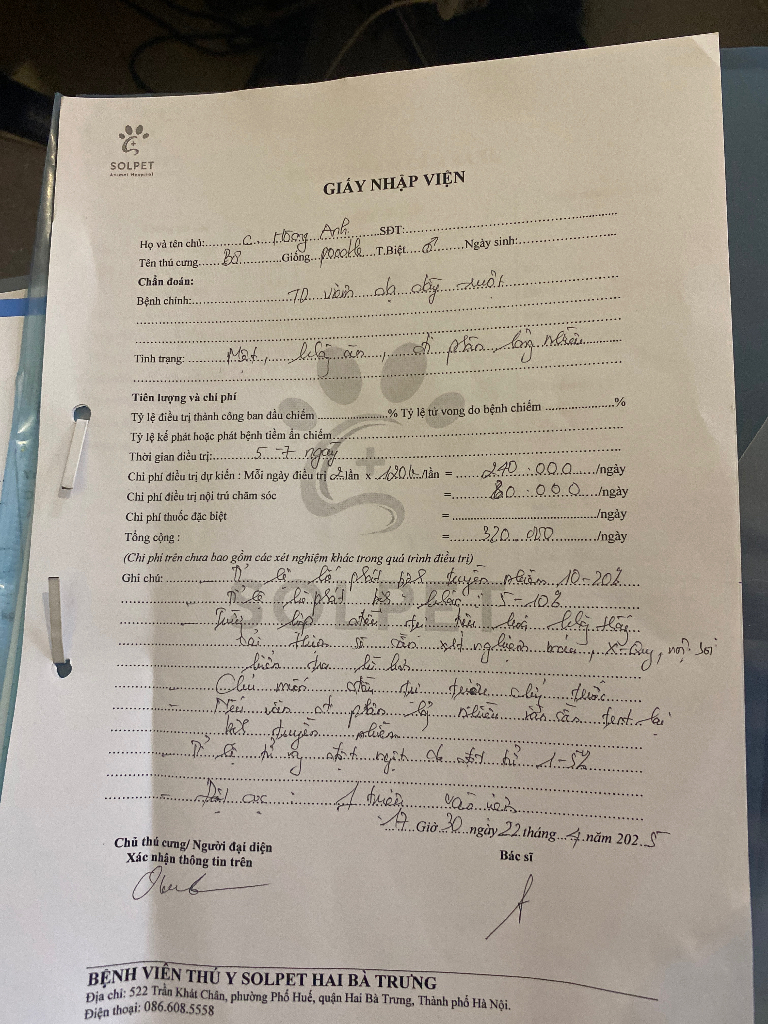 SOLPET
Animal Hospital
GIẤY NHẬP VIỆN
Họ và tên chủ: C. Hồng Anh SĐT:
Tên thú cưng Bơ Giống poodle T.Biệt ♂ Ngày sinh:
Chẩn đoán:
Bệnh chính: TD viêm dạ dày ruột
Tình trạng: Mệt, không ăn, đi phân lỏng nhiều
Tiên lượng và chi phí
Tỷ lệ điều trị thành công ban đầu chiếm % Tỷ lệ tử vong do bệnh chiếm %
Tỷ lệ kế phát hoặc phát bệnh tiềm ẩn chiếm
Thời gian điều trị: 5-7 ngày
Chi phí điều trị dự kiến : Mỗi ngày điều trị 2 lần x 120k/lần = 240.000 /ngày
Chi phí điều trị nội trú chăm sóc = 80.000 /ngày
Chi phí thuốc đặc biệt = /ngày
Tổng cộng : = 320.000 /ngày
(Chi phí trên chưa bao gồm các xét nghiệm khác trong quá trình điều trị)
Ghi chú: Tỉ lệ kế phát truyền nhiễm 10-20%
Tỉ lệ kế phát khác 5-10%
- xét nghiệm máu, X-Quay, nội soi
- Chủ muốn điều trị trước
- Nếu vẫn đi phân nhiều cần test lại
truyền nhiễm
- Tỉ lệ đột ngột 1-5%
- Đặt cọc : 1 triệu
17 Giờ 30 ngày 22 tháng 4 năm 2025
Chủ thú cưng/ Người đại diện
Xác nhận thông tin trên
Bác sĩ
BỆNH VIỆN THÚ Y SOLPET HAI BÀ TRƯNG
Địa chỉ: 522 Trần Khát Chân, phường Phố Huế, quận Hai Bà Trưng, Thành phố Hà Nội.
Điện thoại: 086.608.5558